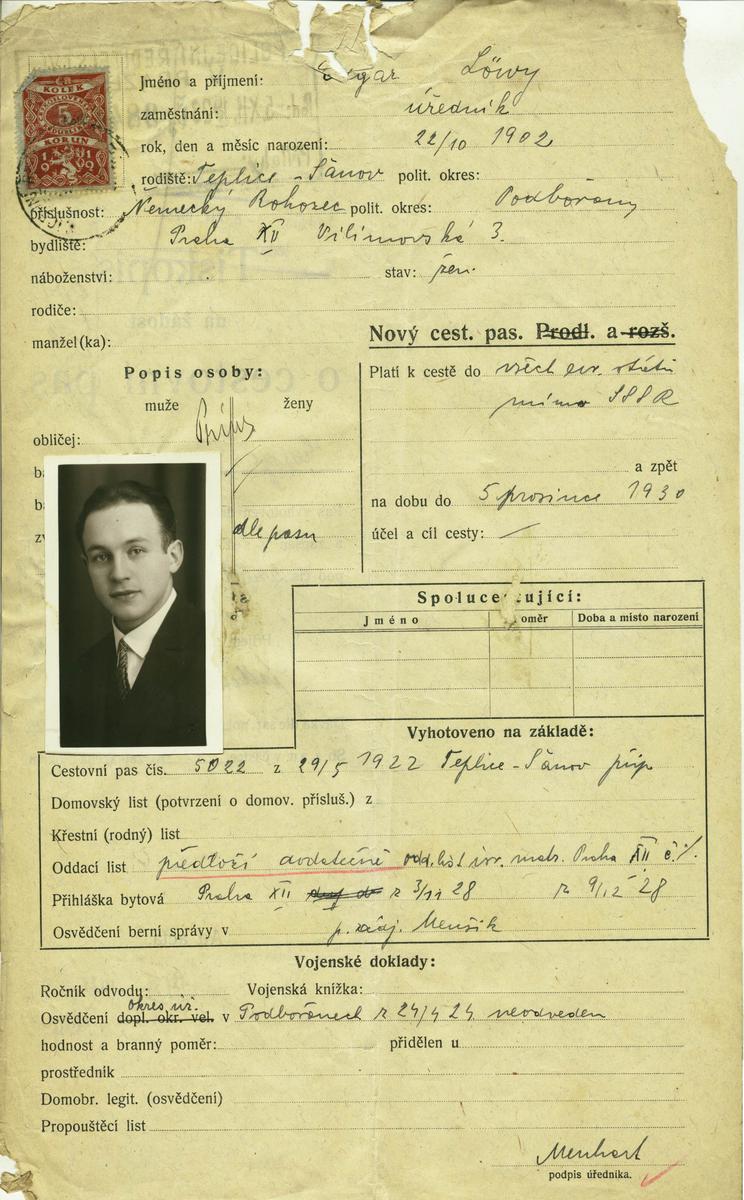 KOLEK
5
KORUN
1919
Jméno a příjmení: Edgar Löwy
zaměstnání: úředník
rok, den a měsíc narození: 22/10 1902
rodiště: Teplice-Šanov polit. okres:
příslušnost: Německý Rohozec polit. okres: Podbořany
bydliště: Praha XII Vilímovská 3.
náboženství: stav: žen.
rodiče:
manžel(ka):
Nový cest. pas. Prodl. a rozš.
Popis osoby:
muže ženy
obličej:
dle pasu
Platí k cestě do všech evr. států
mimo SSSR
a zpět
na dobu do 5 prosince 1930
účel a cíl cesty:
Spolucestující:
Jméno Poměr Doba a místo narození
Vyhotoveno na základě:
Cestovní pas čís. 5022 z 29/5 1922 Teplice-Šanov
Domovský list (potvrzení o domov. přísluš.) z
Křestní (rodný) list
Oddací list předloží dodatečně odd. list izr. matr. Praha XII č. %
Přihláška bytová Praha XII z 3/11 28 9/12 28
Osvědčení berní správy v Menšík
Vojenské doklady:
Ročník odvodu: Vojenská knížka:
okres. úř.
Osvědčení dopl. okr. vel. v Podbořanech z 24/4 24 neodveden
hodnost a branný poměr: přidělen u
prostředník
Domobr. legit. (osvědčení)
Propouštěcí list
Menhart
podpis úředníka.